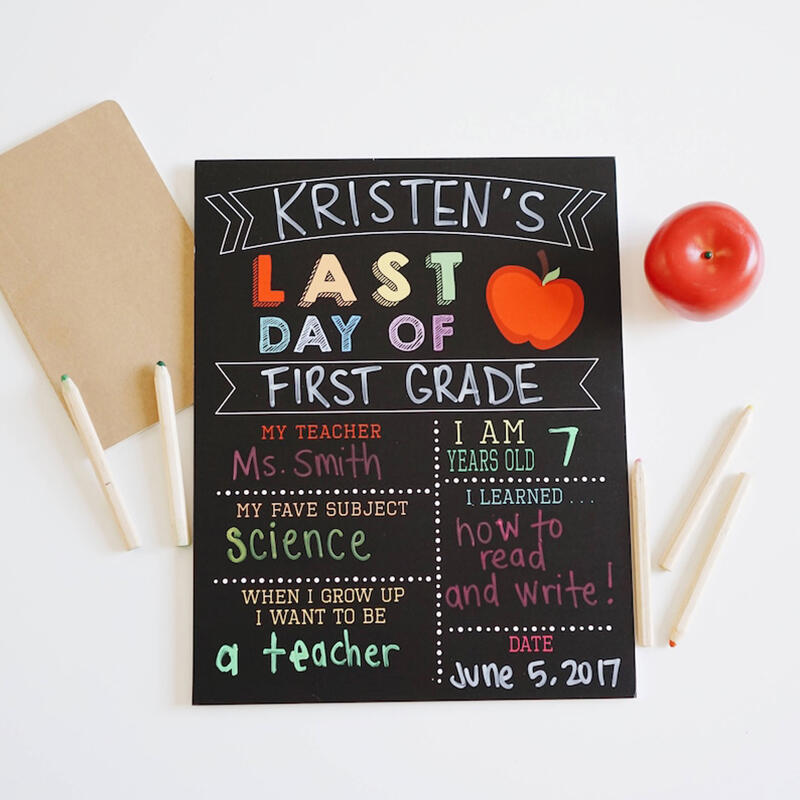 KRISTEN'S
LAST
DAY OF
FIRST GRADE
MY TEACHER
Ms. Smith
MY FAVE SUBJECT
science
WHEN I GROW UP
I WANT TO BE
a teacher
I AM
YEARS OLD 7
I LEARNED...
how to
read
and write!
DATE
June 5, 2017